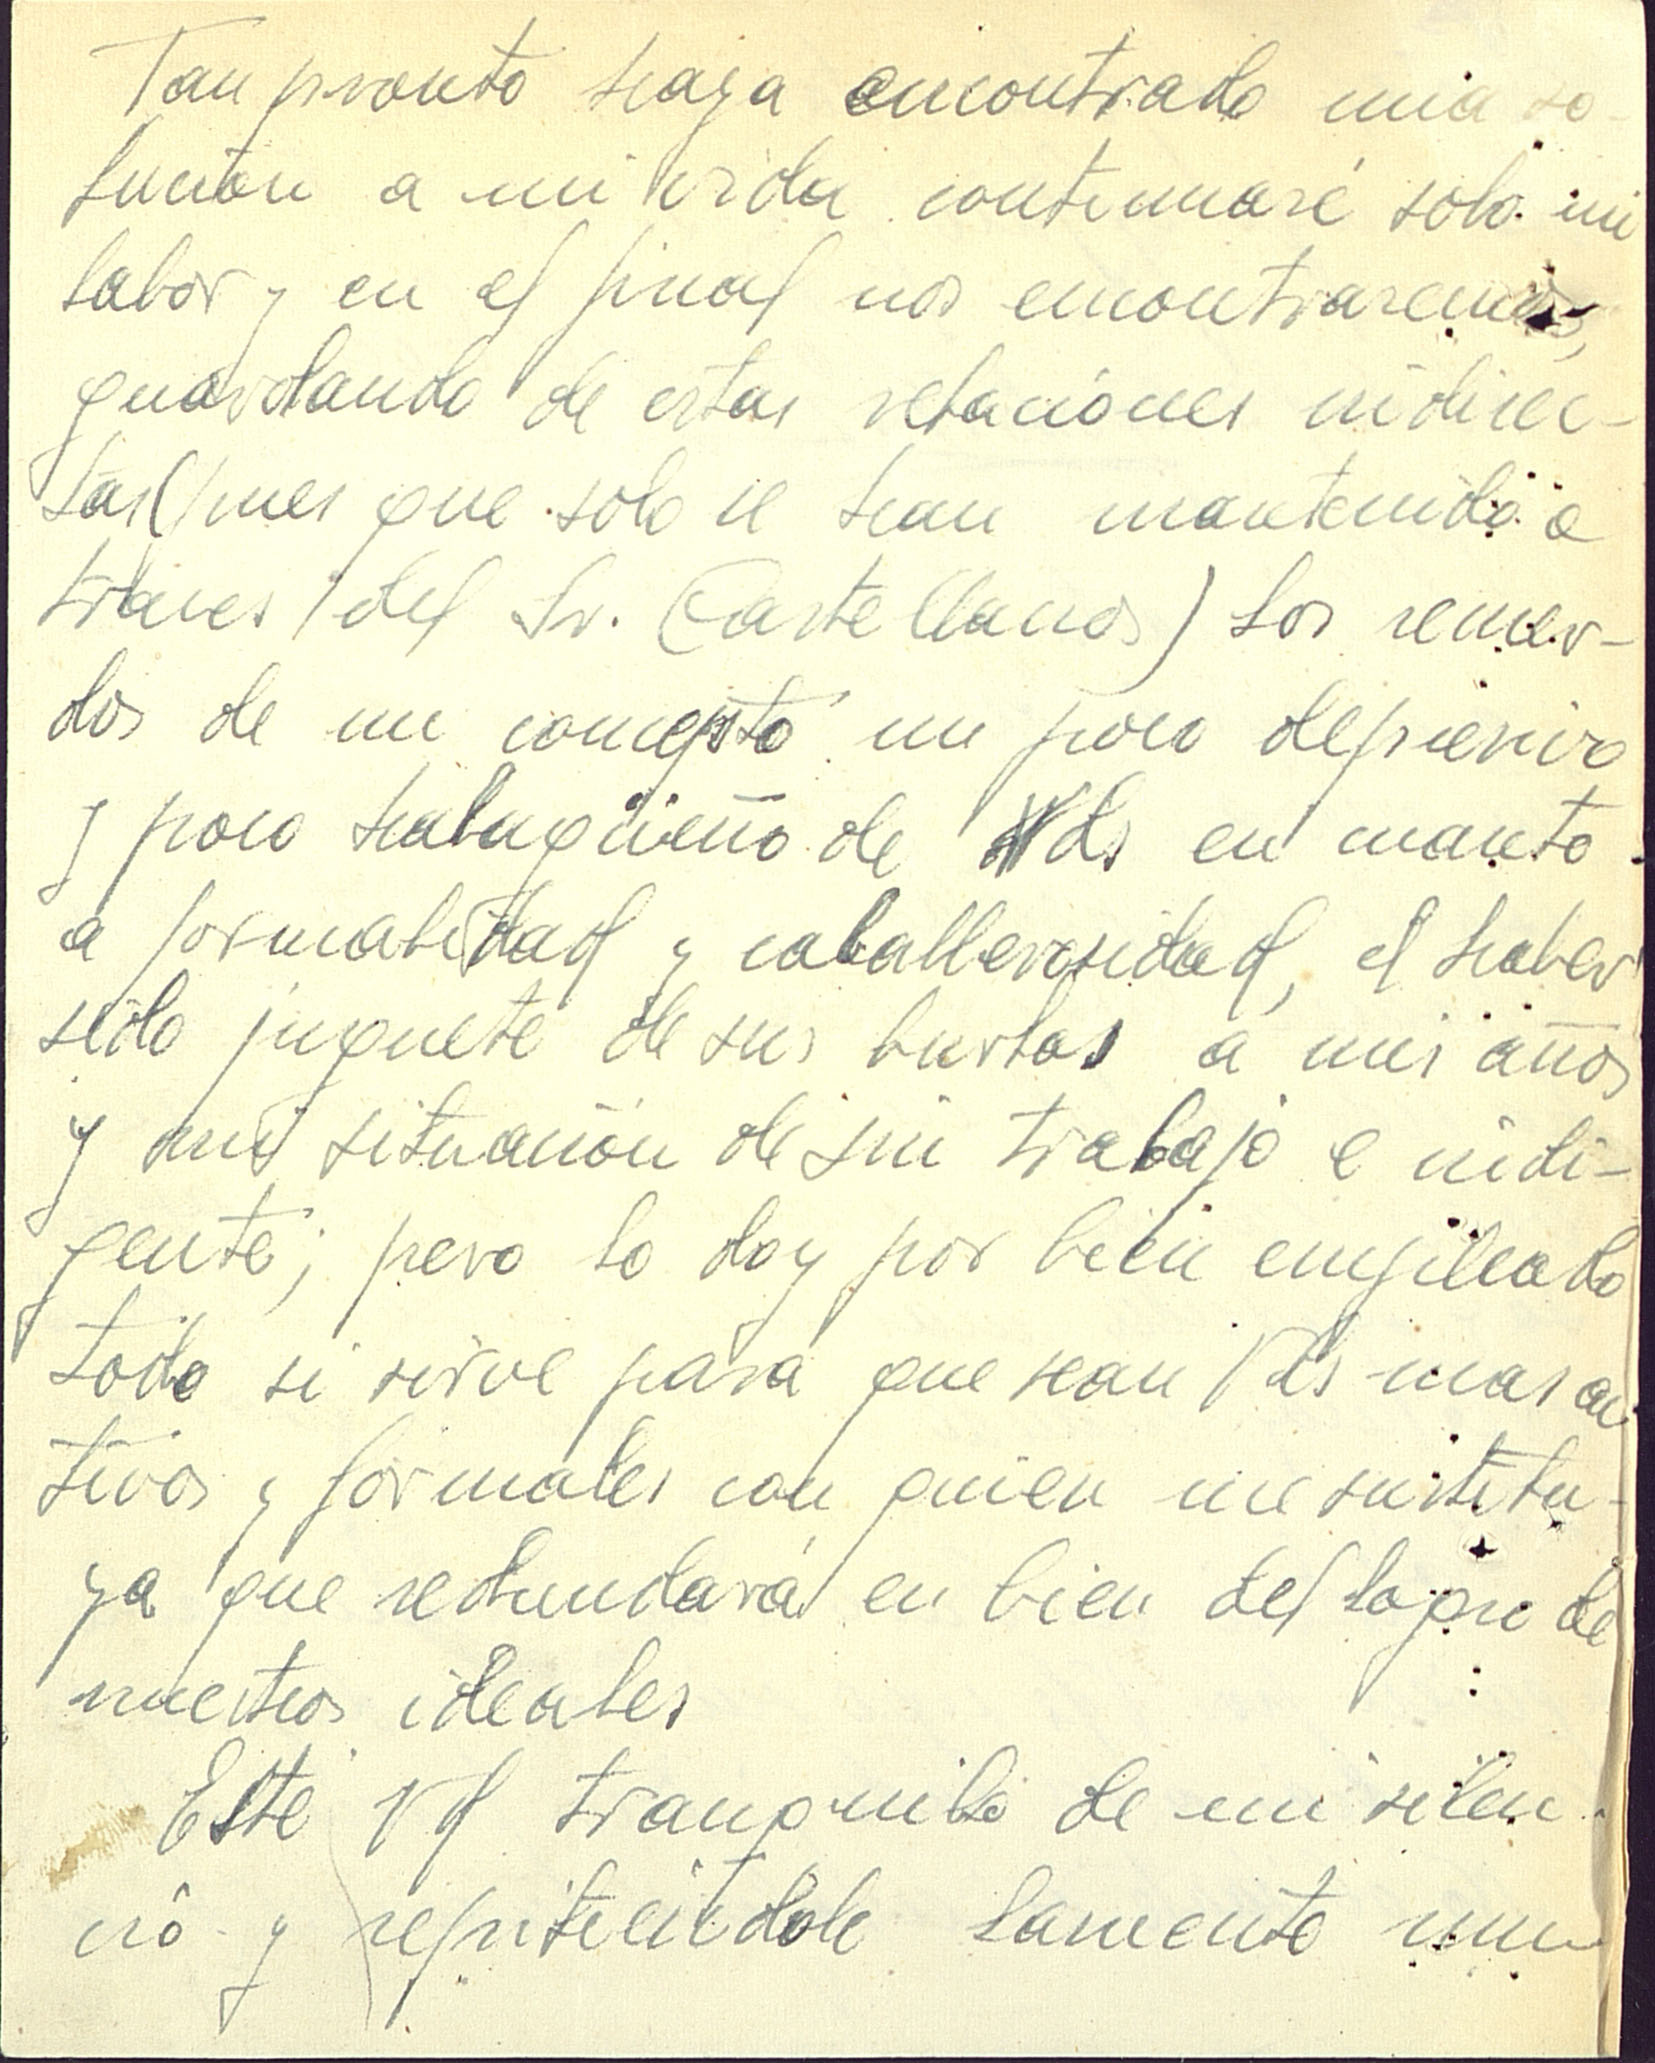 Tan pronto haya encontrado una so-
lución a mi vida continuaré solo mi
labor y en el final nos encontraremos,
guardando de estas relaciones indirec-
tas (pues que solo se han mantenido a
traves del Sr. Castellanos) los recuer-
dos de un concepto un poco depresivo
y poco halagüeño de Vds en cuanto
a formalidad y caballerosidad, el haber
sido juguete de sus burlas a mis años
y mi situación de sin trabajo e indi-
gente; pero lo doy por bien empleado
todo si sirve para que sean Vds mas ac
tivos y formales con quien me sustitu-
ya que redundará en bien del logro de
nuestros ideales
Esté Vd tranquilo de mi silen-
cio y repitiéndole lamento muy